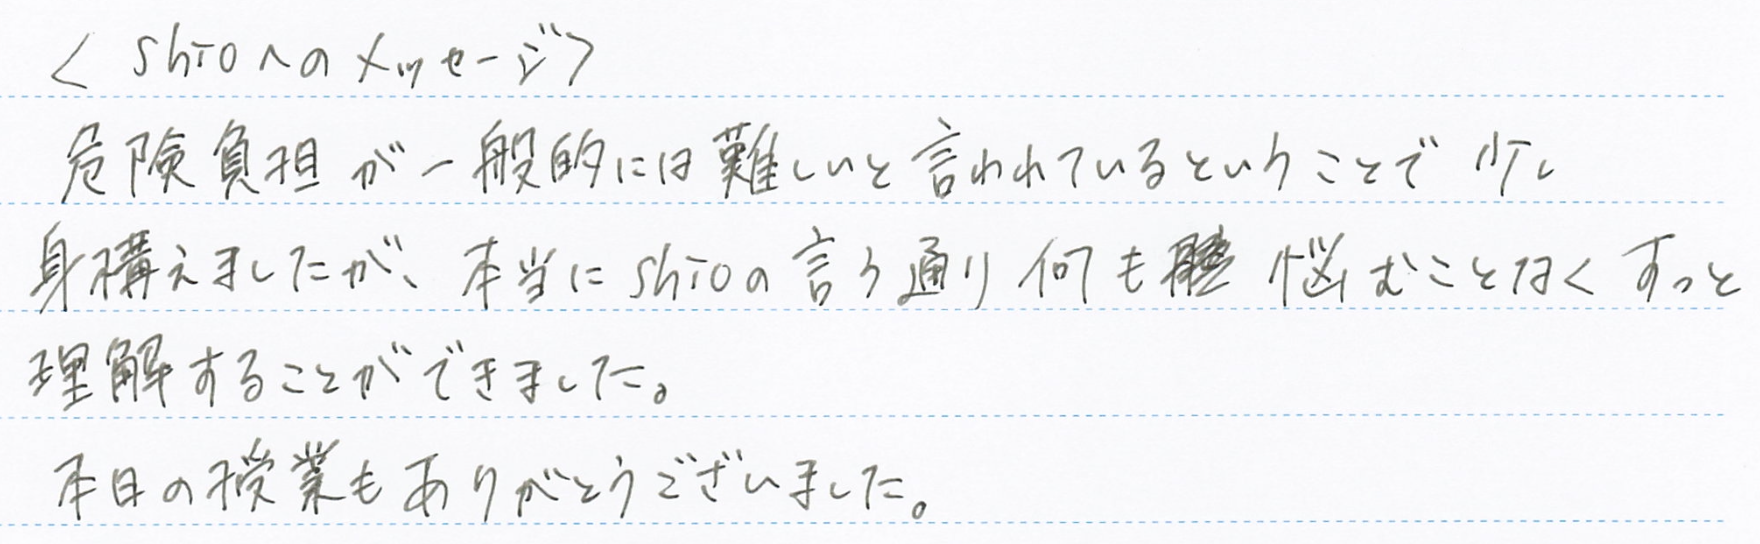 ＜shioへのメッセージ＞
危険負担が一般的には難しいと言われているということで少し
身構えましたが、本当にshioの言う通り何も悩むことなくすっと
理解することができました。
本日の授業もありがとうございました。